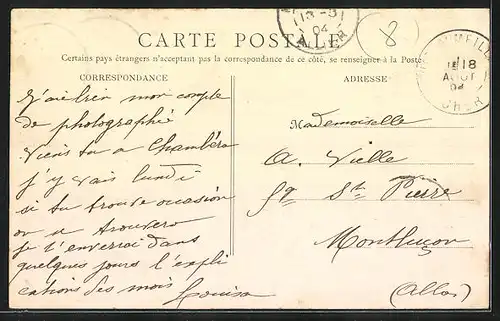 CARTE POSTALE
Certains pays étrangers n'acceptant pas la correspondance de ce côté, se renseigner à la Poste
CORRESPONDANCE
ADRESSE
04
ALLIER
8
18
AOUT
04
CHER
J'ai bien mon compte
de photographie
Viens tu a Chambéra
j'y vais lundi
si tu trouve occasion
on a trouvera
je t'enverrai dans
quelques jours l'expli
cations des mois
Louisa
Mademoiselle
A. Vielle
fg St Pierre
Montluçon
(Allier)